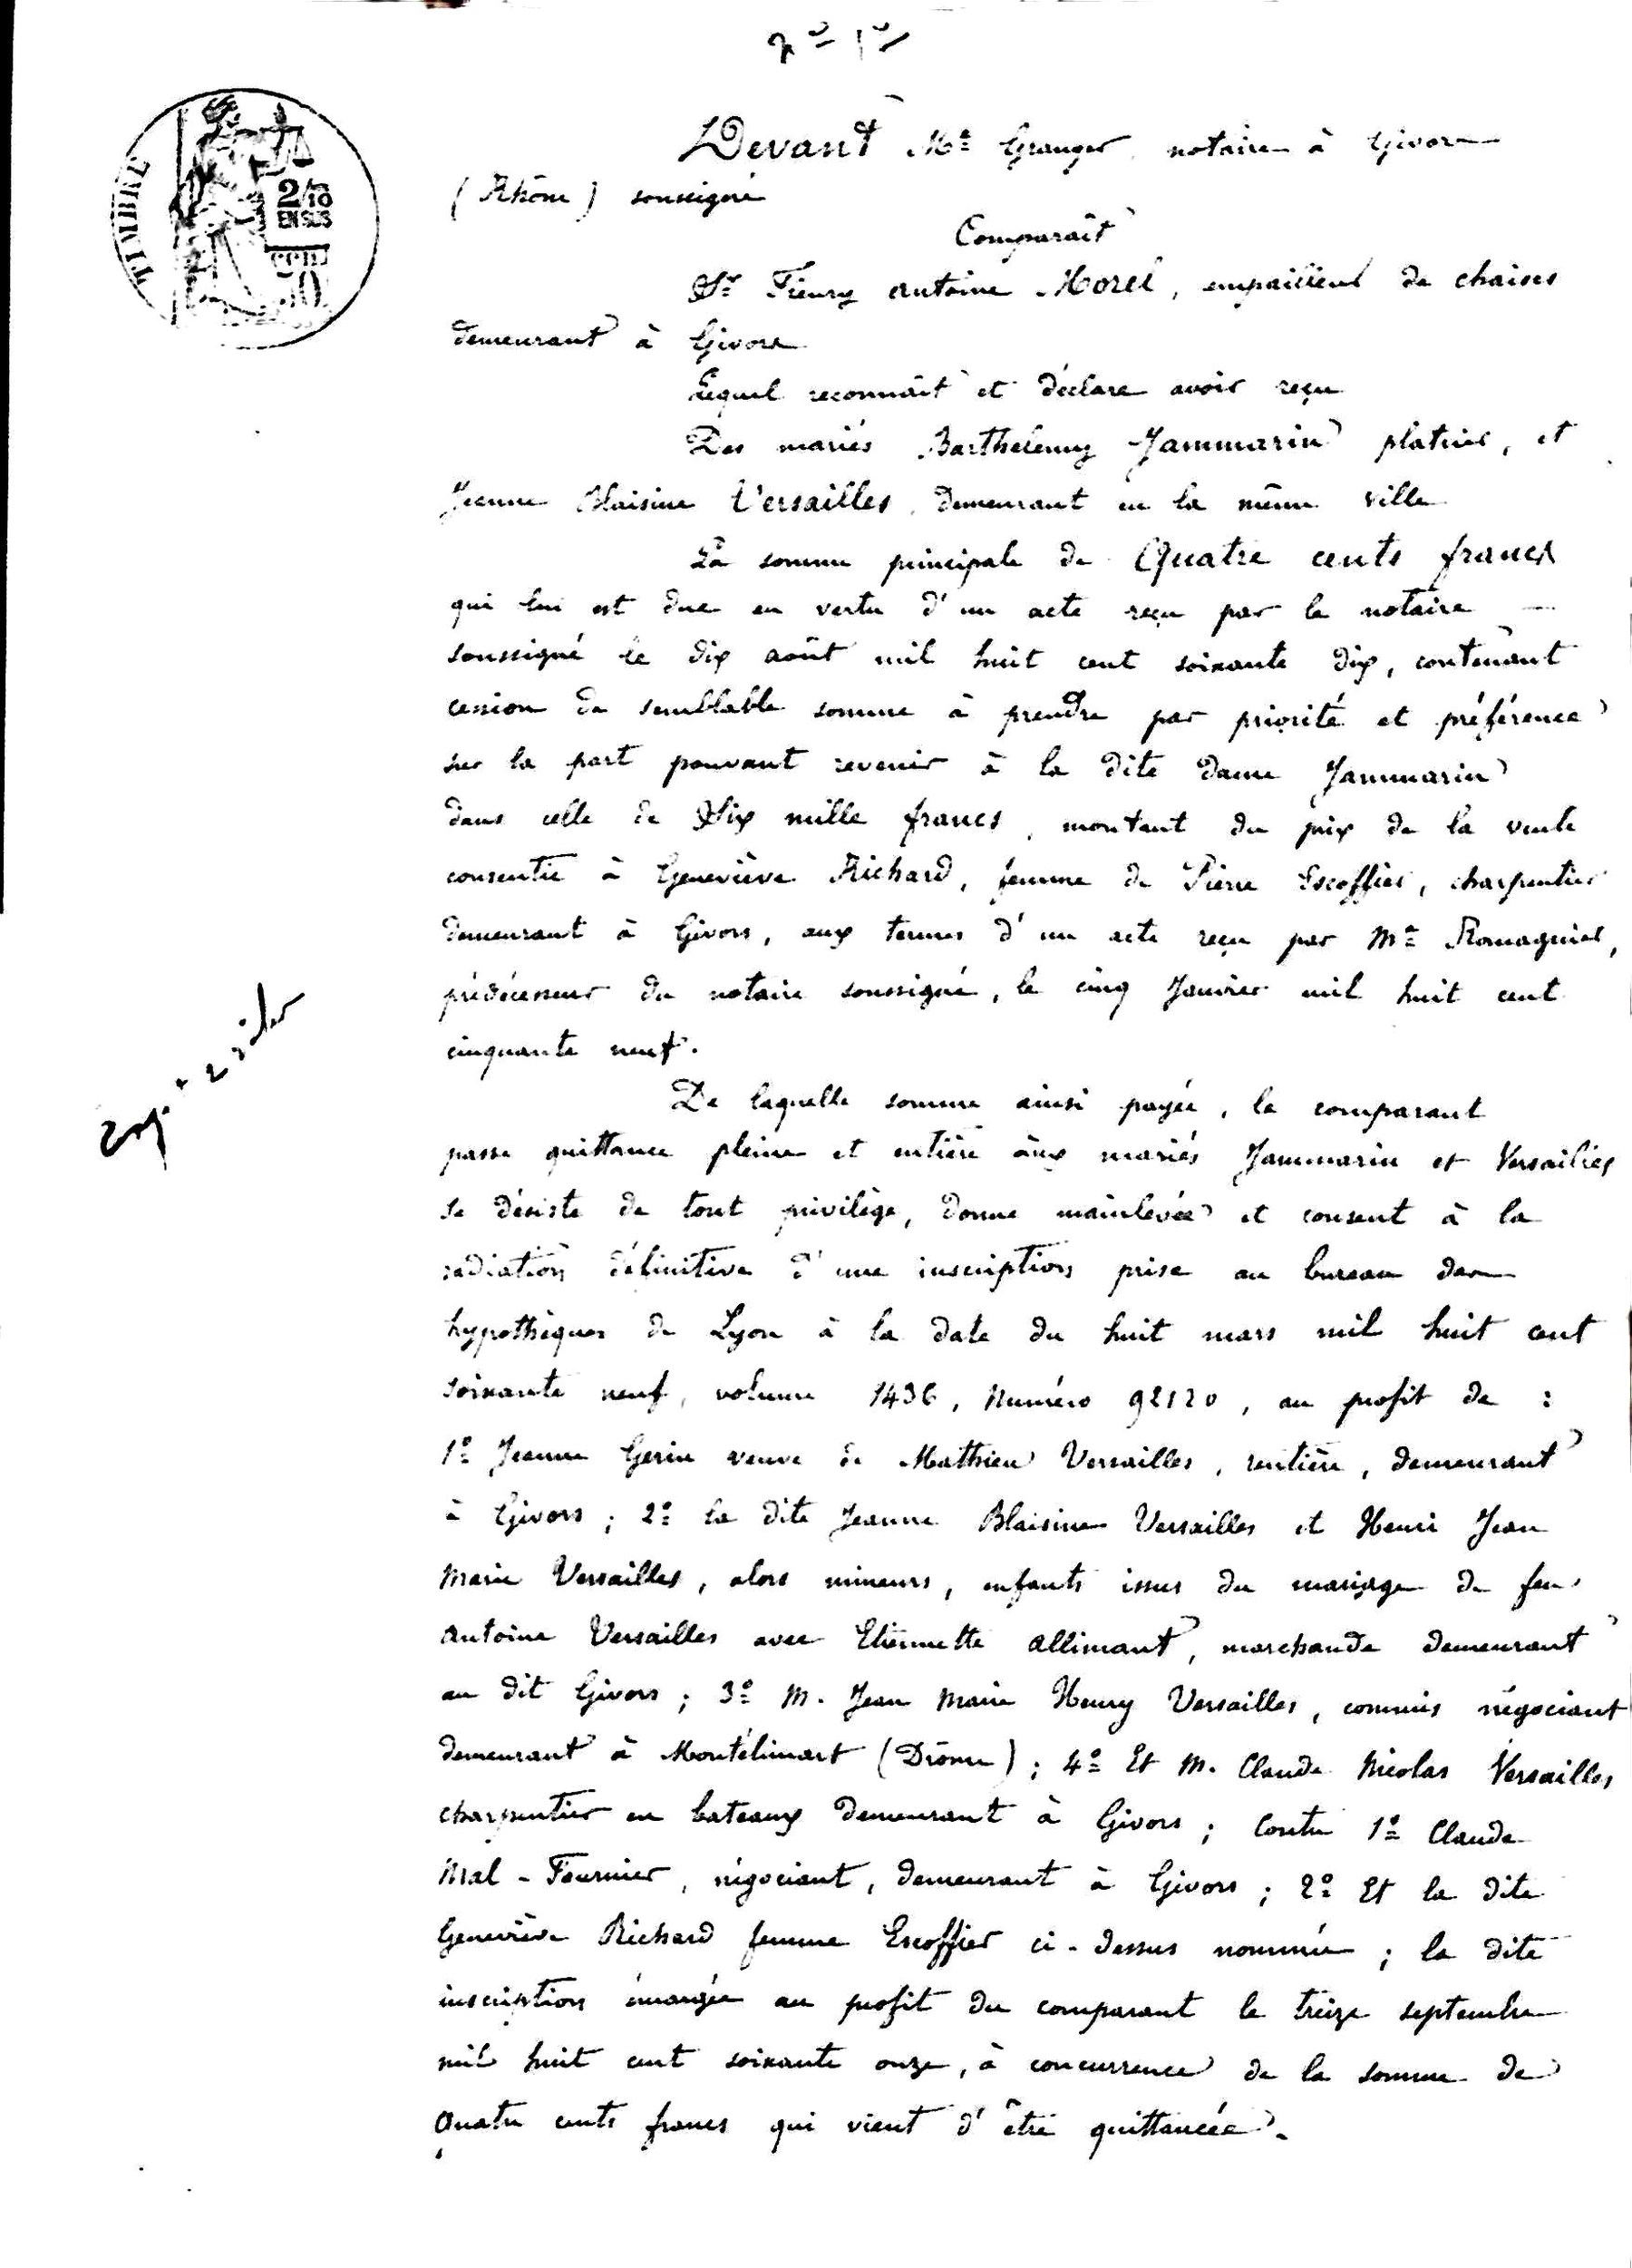 TIMBRE
2/10
EN SUS
Devant Me Granger notaire à Givors
(Rhône) soussigné
Comparaît
Sr Fleury Antoine Morel, empailleur de chaises
demeurant à Givors
Lequel reconnaît et déclare avoir reçu
Des mariés Barthelemy Jammarin platrier, et
Jeanne Blaisine Versailles demeurant en la même ville
La somme principale de Quatre cents francs
qui lui est due en vertu d'un acte reçu par le notaire
soussigné le dix août mil huit cent soixante dix, contenant
cession de semblable somme à prendre par priorité et préférence
sur la part pouvant revenir à la dite dame Jammarin
dans celle de Six mille francs, montant du prix de la vente
consentie à Geneviève Richard, femme de Pierre Escoffier, charpentier
demeurant à Givors, aux termes d'un acte reçu par Me Romagnier,
prédécesseur du notaire soussigné, le cinq Janvier mil huit cent
cinquante neuf.
De laquelle somme ainsi payée, le comparant
passe quittance pleine et entière aux mariés Jammarin et Versailles
se désiste de tout privilège, donne mainlevée et consent à la
radiation définitive d'une inscription prise au bureau des
hypothèques de Lyon à la date du huit mars mil huit cent
soixante neuf, volume 1436, Numéro 92120, au profit de :
1° Jeanne Gerin veuve de Mathieu Versailles, rentière, demeurant
à Givors ; 2° la dite Jeanne Blaisine Versailles et Henri Jean
Marie Versailles, alors mineurs, enfants issus du mariage de feu
Antoine Versailles avec Etiennette Allimant, marchande demeurant
au dit Givors ; 3° M. Jean Marie Henry Versailles, commis négociant
demeurant à Montélimart (Drôme) ; 4° Et M. Claude Nicolas Versailles
charpentier en bateaux demeurant à Givors ; Contre 1° Claude
Mal-Fournier, négociant, demeurant à Givors ; 2° Et la dite
Geneviève Richard femme Escoffier ci-dessus nommée ; la dite
inscription émargée au profit du comparant le treize septembre
mil huit cent soixante onze, à concurrence de la somme de
Quatre cents francs qui vient d'être quittancée.